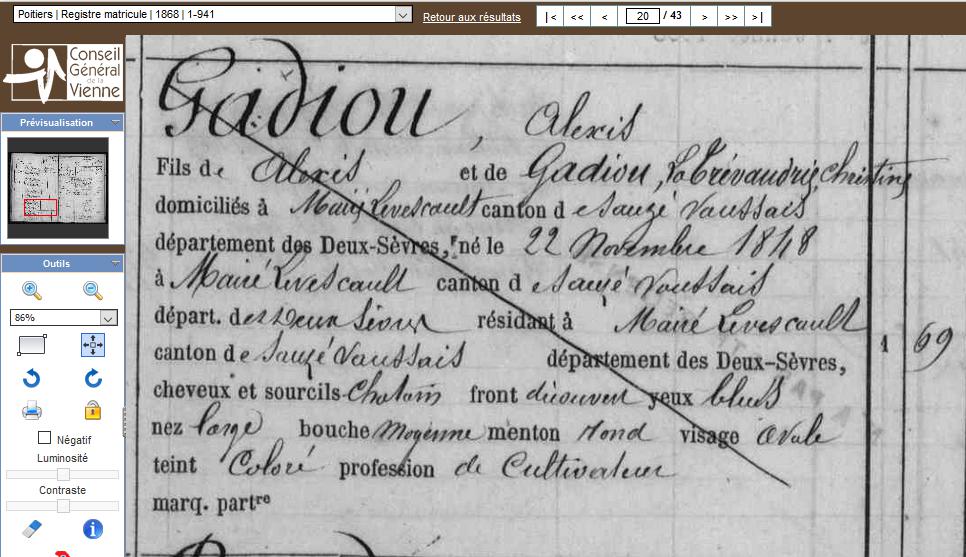 Poitiers | Registre matricule | 1868 | 1-941
Retour aux résultats
|< << < 20 / 43 > >> >|
Conseil
Général
de la
Vienne
Prévisualisation
Outils
86%
Négatif
Luminosité
Contraste
Gadiou, Alexis
Fils de Alexis et de Gadiou, Christine
domiciliés à Mairé Levescault canton de Sauzé Vaussais
département des Deux-Sèvres, né le 22 Novembre 1848
à Mairé Levescault canton de Sauzé Vaussais
départ. des Deux Sèvres résidant à Mairé Levescault
canton de Sauzé Vaussais département des Deux-Sèvres,
cheveux et sourcils Chatains front découvert yeux bleus
nez large bouche Moyenne menton rond visage Ovale
teint Coloré profession de Cultivateur
marq. partre
1 69